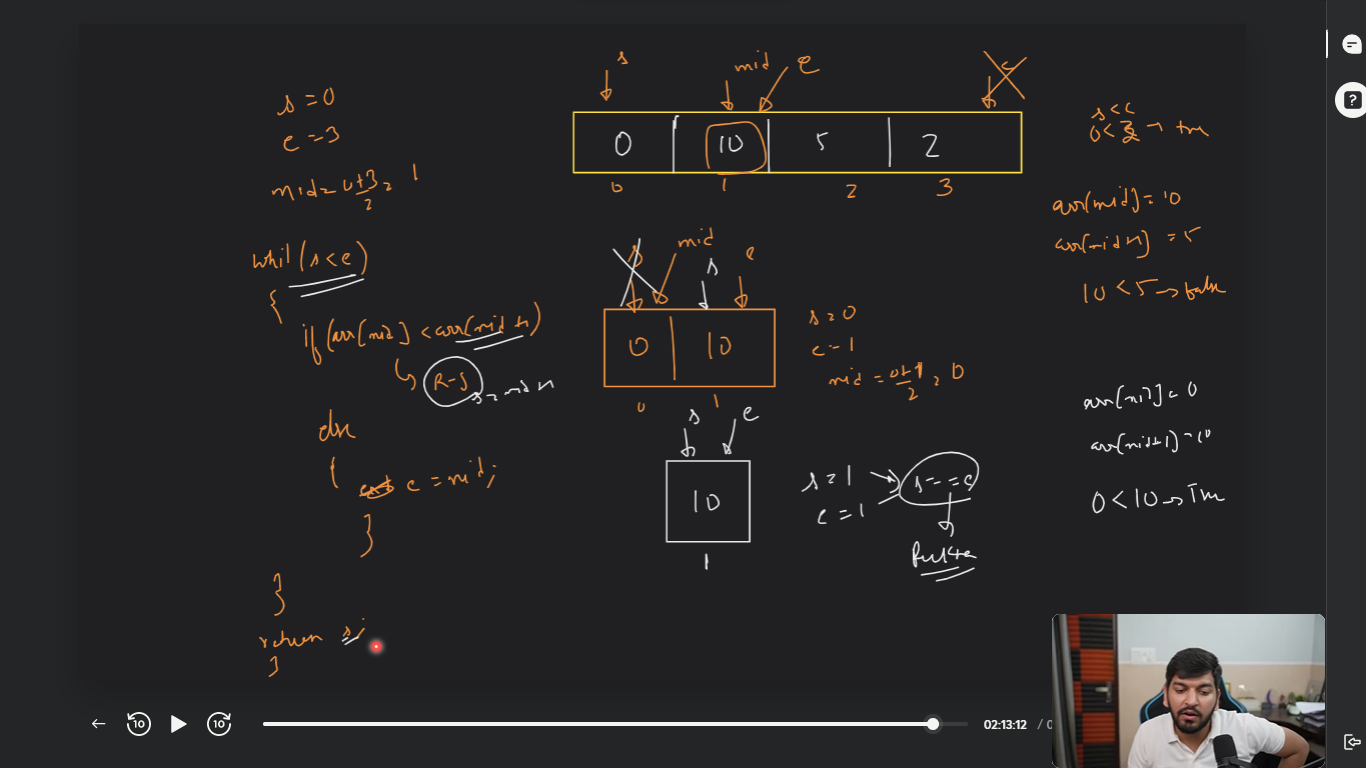 s = 0
e = 3
mid = 0+3/2 = 1
whil (s < e)
{
if (arr[mid] < arr[mid+1)
R-S
s = mid+1
else
{
e = mid;
}
}
return s;
}
s
mid
e
e
0 10 5 2
0 1 2 3
s
mid
s
e
0 10
0 1
s = 0
e - 1
mid = 0+1/2 = 0
s
e
10
1
s = 1
e = 1
s == e
s < e
arr[mid] = 10
arr[mid+1] = 5
10 < 5 → false
arr[mid] = 0
arr[mid+1) = 10
0 < 10 → True
10
10
02:13:12
/ 0
?